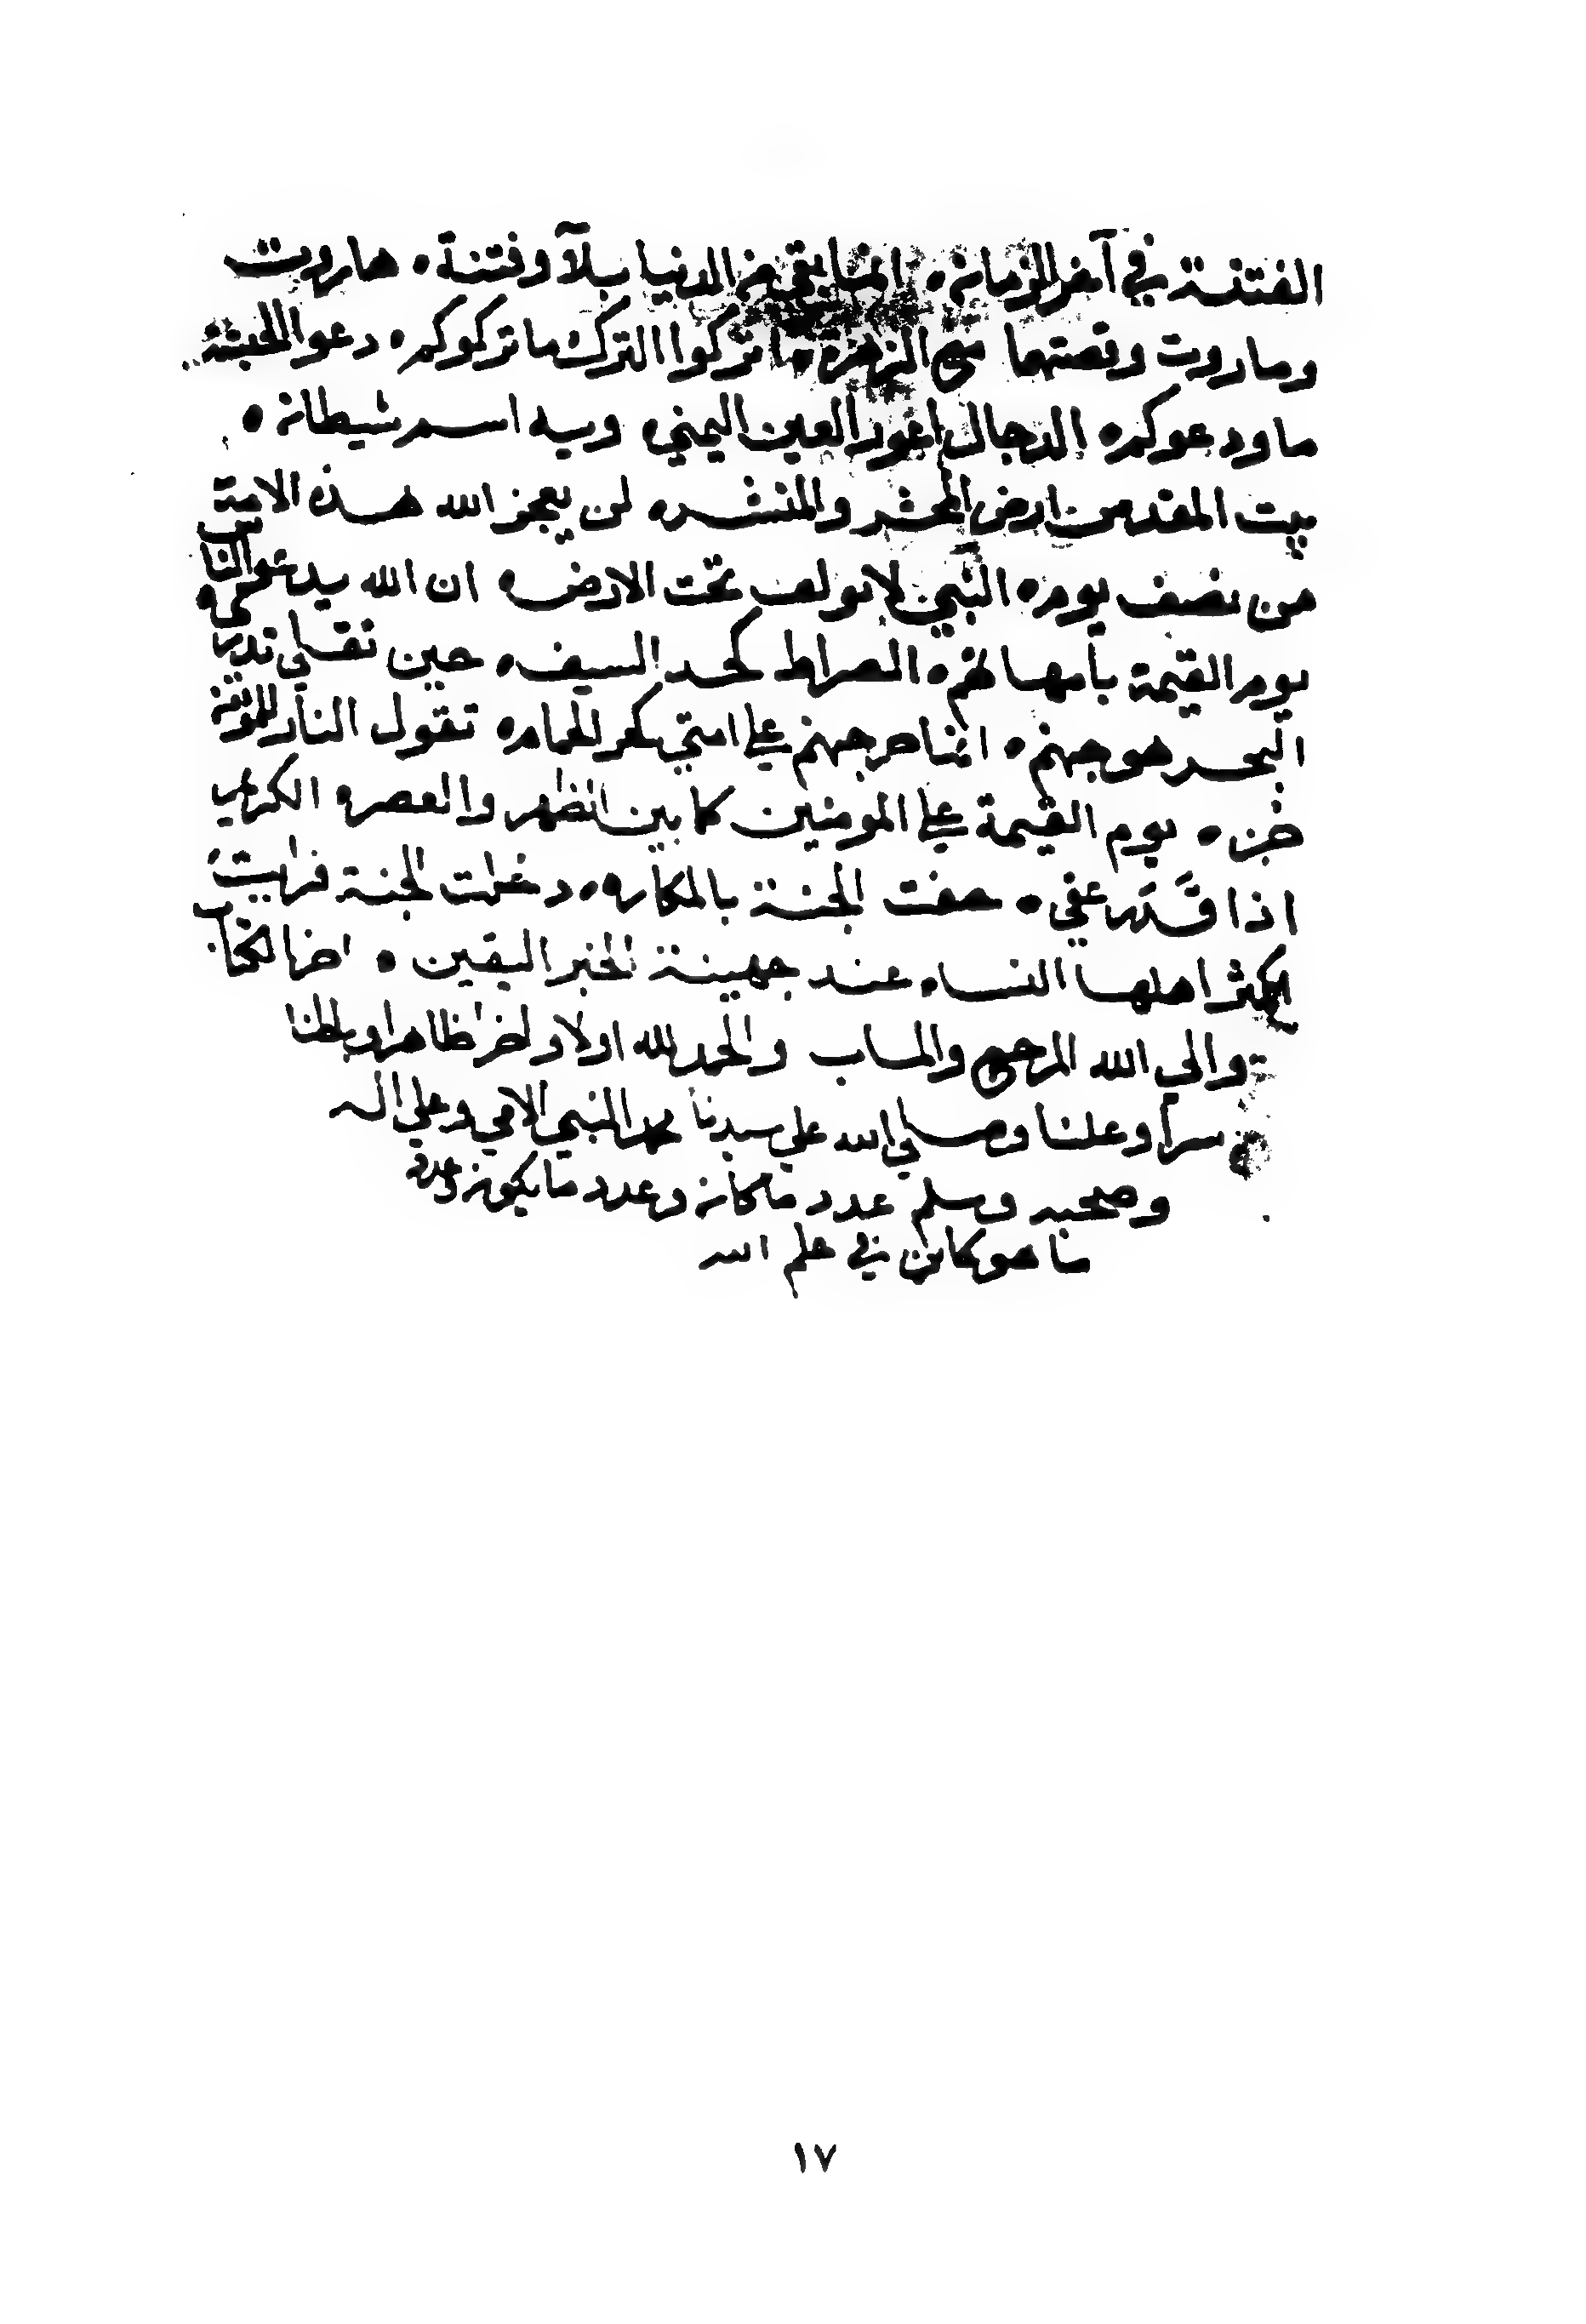 الفتنة في آخر الزمان ٥ انما بقي من الدنيا بلآ وفتنة ٥ هاروت
وماروت وقصتهما مع الزهرة ٥ اتركوا الترك ما تركوكم ٥ دعوا الحبشة
ما ودعوكم ٥ الدجال اعور العين اليمني ٥ ويه اسم شيطان ٥
بيت المقدس ارض المحشر والمنشر ٥ لن يعجز الله هذه الامة
من نصف يوم ٥ النبي لا يولف تحت الارض ٥ ان الله يدعو الناس
يوم القيمة بأمهاتهم ٥ الصراط كحد السيف ٥ حين تقلي تدري
البحر هو جهنم ٥ انما حر جهنم علي امتي كحر الحمام ٥ تقول النار للمؤمن
جز ٥ يوم القيمة علي المومنين كما بين الظهر والعصر ٥ الكريم
اذا قدر عفي ٥ حفت الجنة بالمكاره ٥ دخلت الجنة فرايت
اكثر اهلها النساء ٥ عند جهينة الخبر اليقين ٥ اخر الكتاب
والي الله المرجع والماب والحمد لله اولا واخرا ظاهرا وباطنا
سرا وعلنا وصلي الله علي سيدنا محمد النبي الامي وعلي اله
وصحبه وسلم عدد ما كان وعدد ما يكون وعدد
ما هو كائن في علم الله
١٧